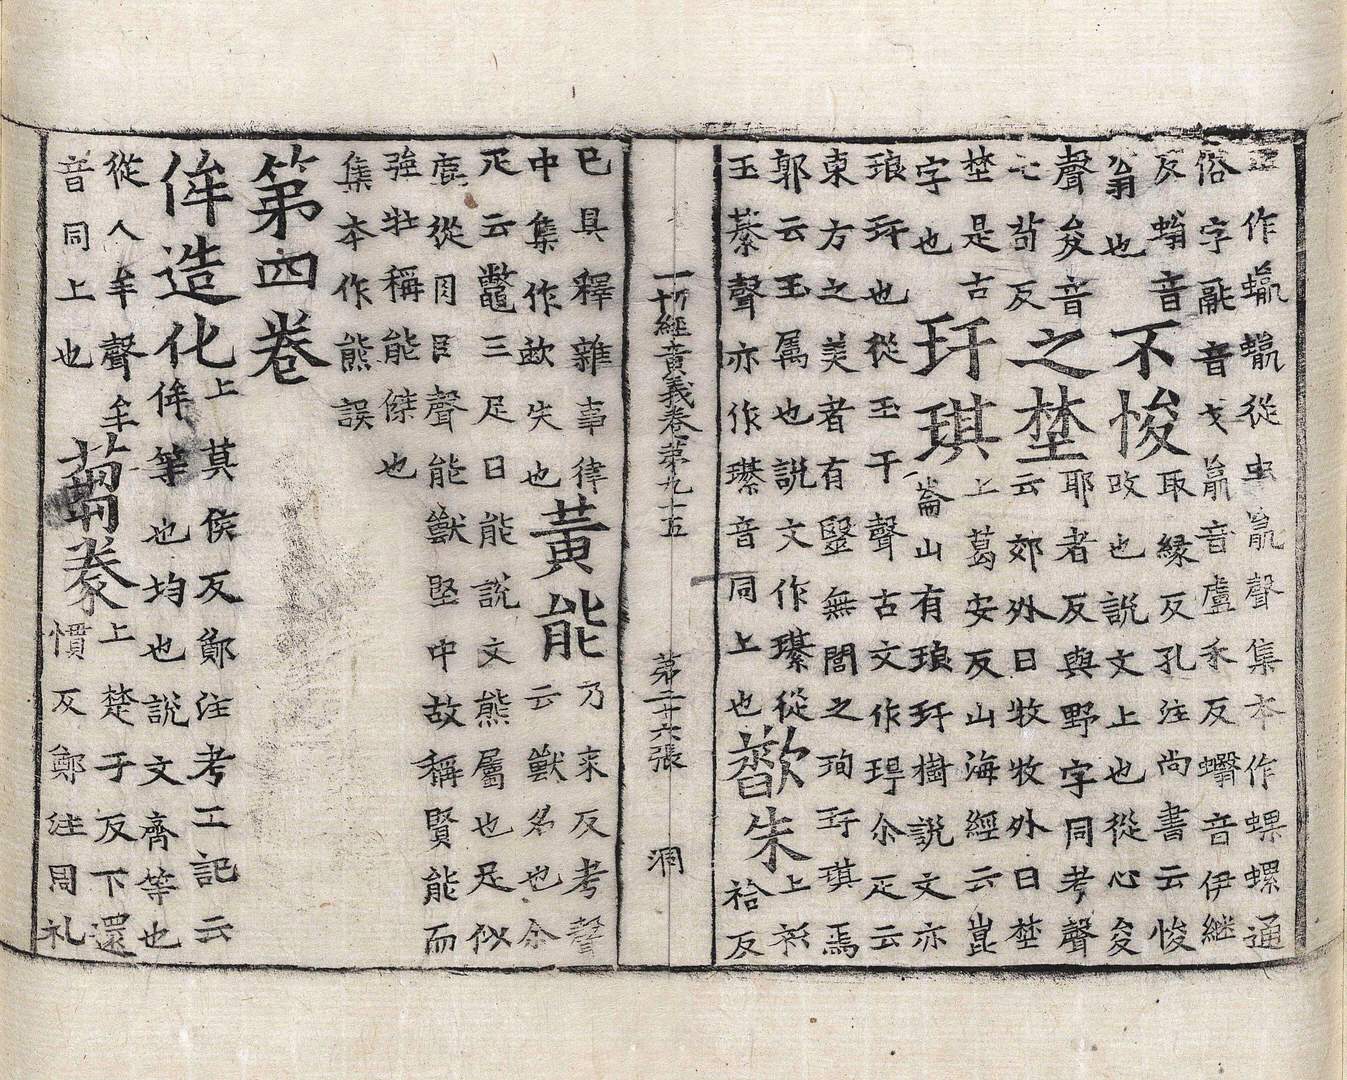 作蠃蠃從虫𣎆聲集本作螺螺通
俗字亂音戈𣎆音盧禾反蠮音伊継
反螉音
翁也
不悛
取緣反孔注尚書云悛
改也說文上也從心夋
聲夋音
七荀反
之埜
耶者反與野字同考聲
云郊外曰牧牧外曰埜
埜是古
字也
玕琪
上葛安反山海經云崑
崙山有琅玕樹說文亦
琅玕也從玉干聲古文作𤥚尒疋云
東方之美者有毉無閭之珣玗琪焉
郭云玉属也說文作璂從
玉綦聲亦作璂音同上也
歜朱
上衫
袷反
一切經音義卷第九十五 第二十六張 洞
已具釋雜事律
中集作歃失也
黃能
乃來反考聲
云獸名也尒
疋云鼈三足曰能說文熊屬也足似
鹿從肉㠯聲能獸堅中故稱賢能而
強壯稱能傑也
集本作熊誤
第四卷
侔造化
上莫侯反鄭注考工記云
侔等也均也說文齊等也
從人牟聲牟
音同上也
蒭豢
上楚于反下還
慣反鄭注周礼